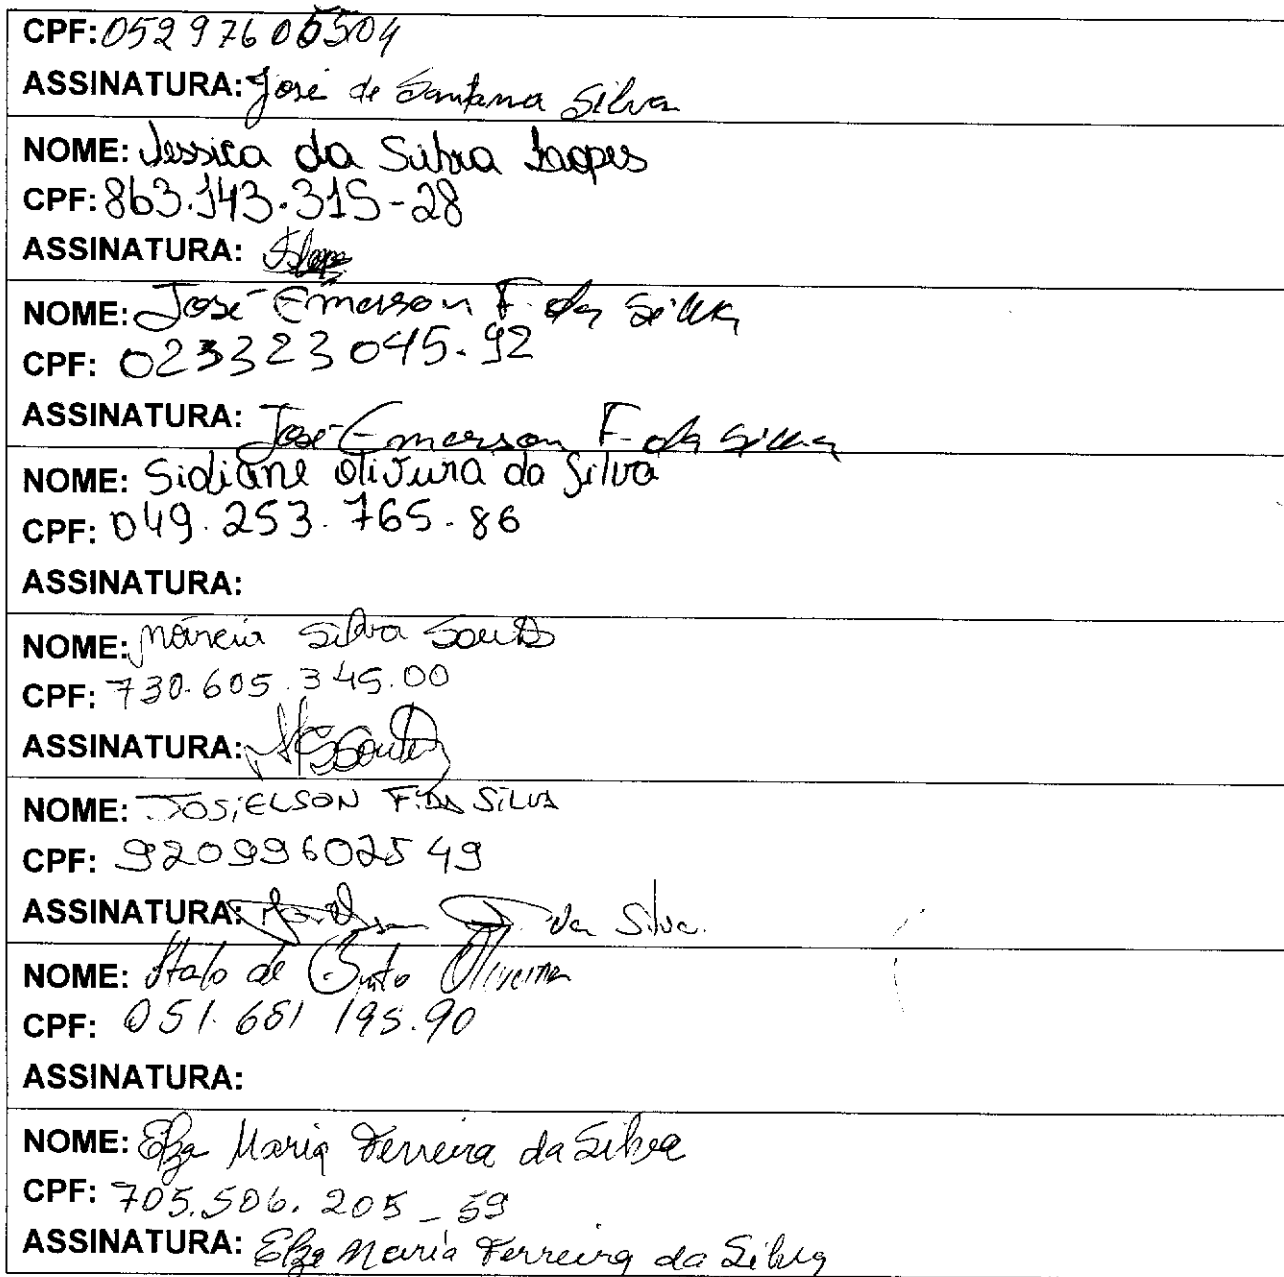 CPF: 05297605504
ASSINATURA: José de Santana Silva
NOME: Jessica da Silva Lopes
CPF: 863.143.315-28
ASSINATURA:
NOME: José Emerson F. da Silva
CPF: 023323045.92
ASSINATURA: José Emerson F. da Silva
NOME: Sidiane Oliveira da Silva
CPF: 049.253.765.86
ASSINATURA:
NOME: Márcia Silva
CPF: 730.605.345.00
ASSINATURA:
NOME: JOSIELSON F. DA SILVA
CPF: 92099602549
ASSINATURA: F. da Silva.
NOME: Italo de Oliveira
CPF: 051.681 195.90
ASSINATURA:
NOME: Elza Maria Ferreira da Silva
CPF: 705.506.205_59
ASSINATURA: Elza Maria Ferreira da Silva